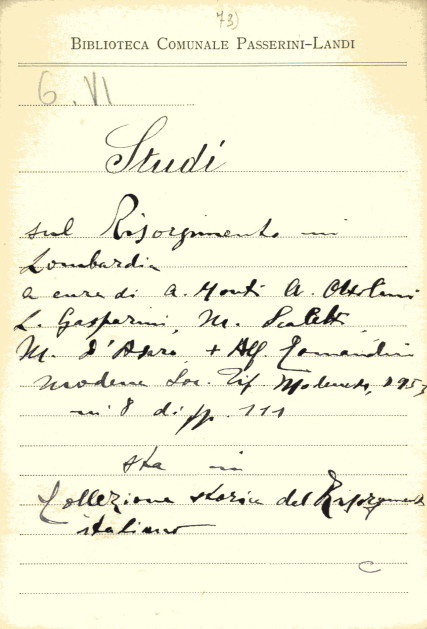 73)
BIBLIOTECA COMUNALE PASSERINI-LANDI
6. VI
Studi
sul Risorgimento in
Lombardia
a cura di A. Monti A. Ottolini
L. Gasparini, M.
M. + Alf.
Modena Soc. Tip. Modenese,
in 8 di pp. 111
sta in
Collezione storica del Risorgimento
italiano
C